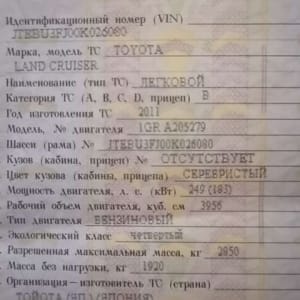 Идентификационный номер (VIN)
JTEBU3FJ00K026080
Марка, модель ТС TOYOTA
LAND CRUISER
Наименование (тип ТС) ЛЕГКОВОЙ
Категория ТС (А, В, С, D, прицеп) B
Год изготовления ТС 2011
Модель, № двигателя 1GR A205279
Шасси (рама) № JTEBU3FJ00K026080
Кузов (кабина, прицеп) № ОТСУТСТВУЕТ
Цвет кузова (кабины, прицепа) СЕРЕБРИСТЫЙ
Мощность двигателя, л. с. (кВт) 249 (183)
Рабочий объем двигателя, куб. см 3956
Тип двигателя БЕНЗИНОВЫЙ
Экологический класс четвертый
Разрешенная максимальная масса, кг 2850
Масса без нагрузки, кг 1920
Организация—изготовитель ТС (страна)
ТОЙОТА (ЯПОНИЯ)